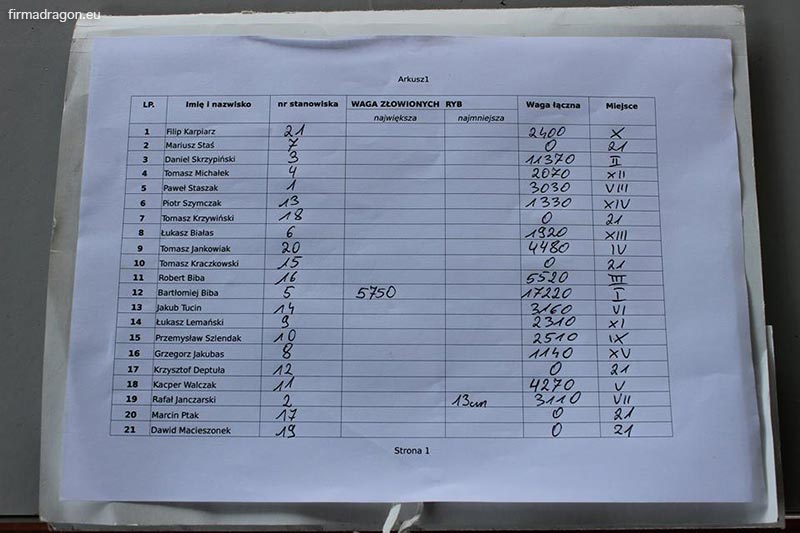 firmadragon.eu
Arkusz1
LP. Imię i nazwisko nr stanowiska WAGA ZŁOWIONYCH RYB Waga łączna Miejsce
największa najmniejsza
1 Filip Karpiarz 21 2400 X
2 Mariusz Staś 7 0 21
3 Daniel Skrzypiński 3 11370 II
4 Tomasz Michałek 4 2070 XII
5 Paweł Staszak 1 3030 VIII
6 Piotr Szymczak 13 1330 XIV
7 Tomasz Krzywiński 18 0 21
8 Łukasz Białas 6 1920 XIII
9 Tomasz Jankowiak 20 4480 IV
10 Tomasz Kraczkowski 15 0 21
11 Robert Biba 16 5520 III
12 Bartłomiej Biba 5 5750 17220 I
13 Jakub Tucin 14 3160 VI
14 Łukasz Lemański 9 2310 XI
15 Przemysław Szlendak 10 2510 IX
16 Grzegorz Jakubas 8 1140 XV
17 Krzysztof Deptuła 12 0 21
18 Kacper Walczak 11 4270 V
19 Rafał Janczarski 2 13cm 3110 VII
20 Marcin Ptak 17 0 21
21 Dawid Macieszonek 19 0 21
Strona 1